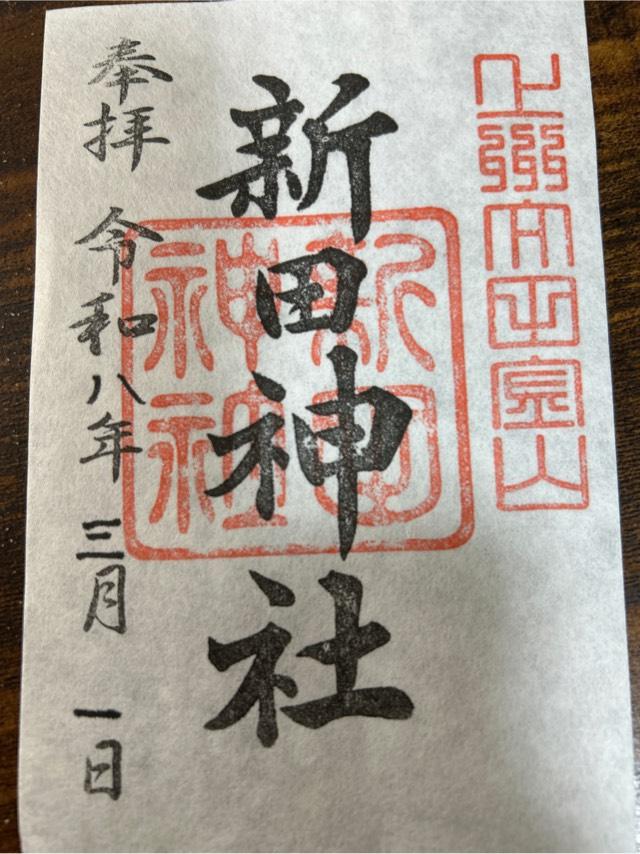 上州太田金山
新田神社
新田
神社
奉拝 令和八年三月一日